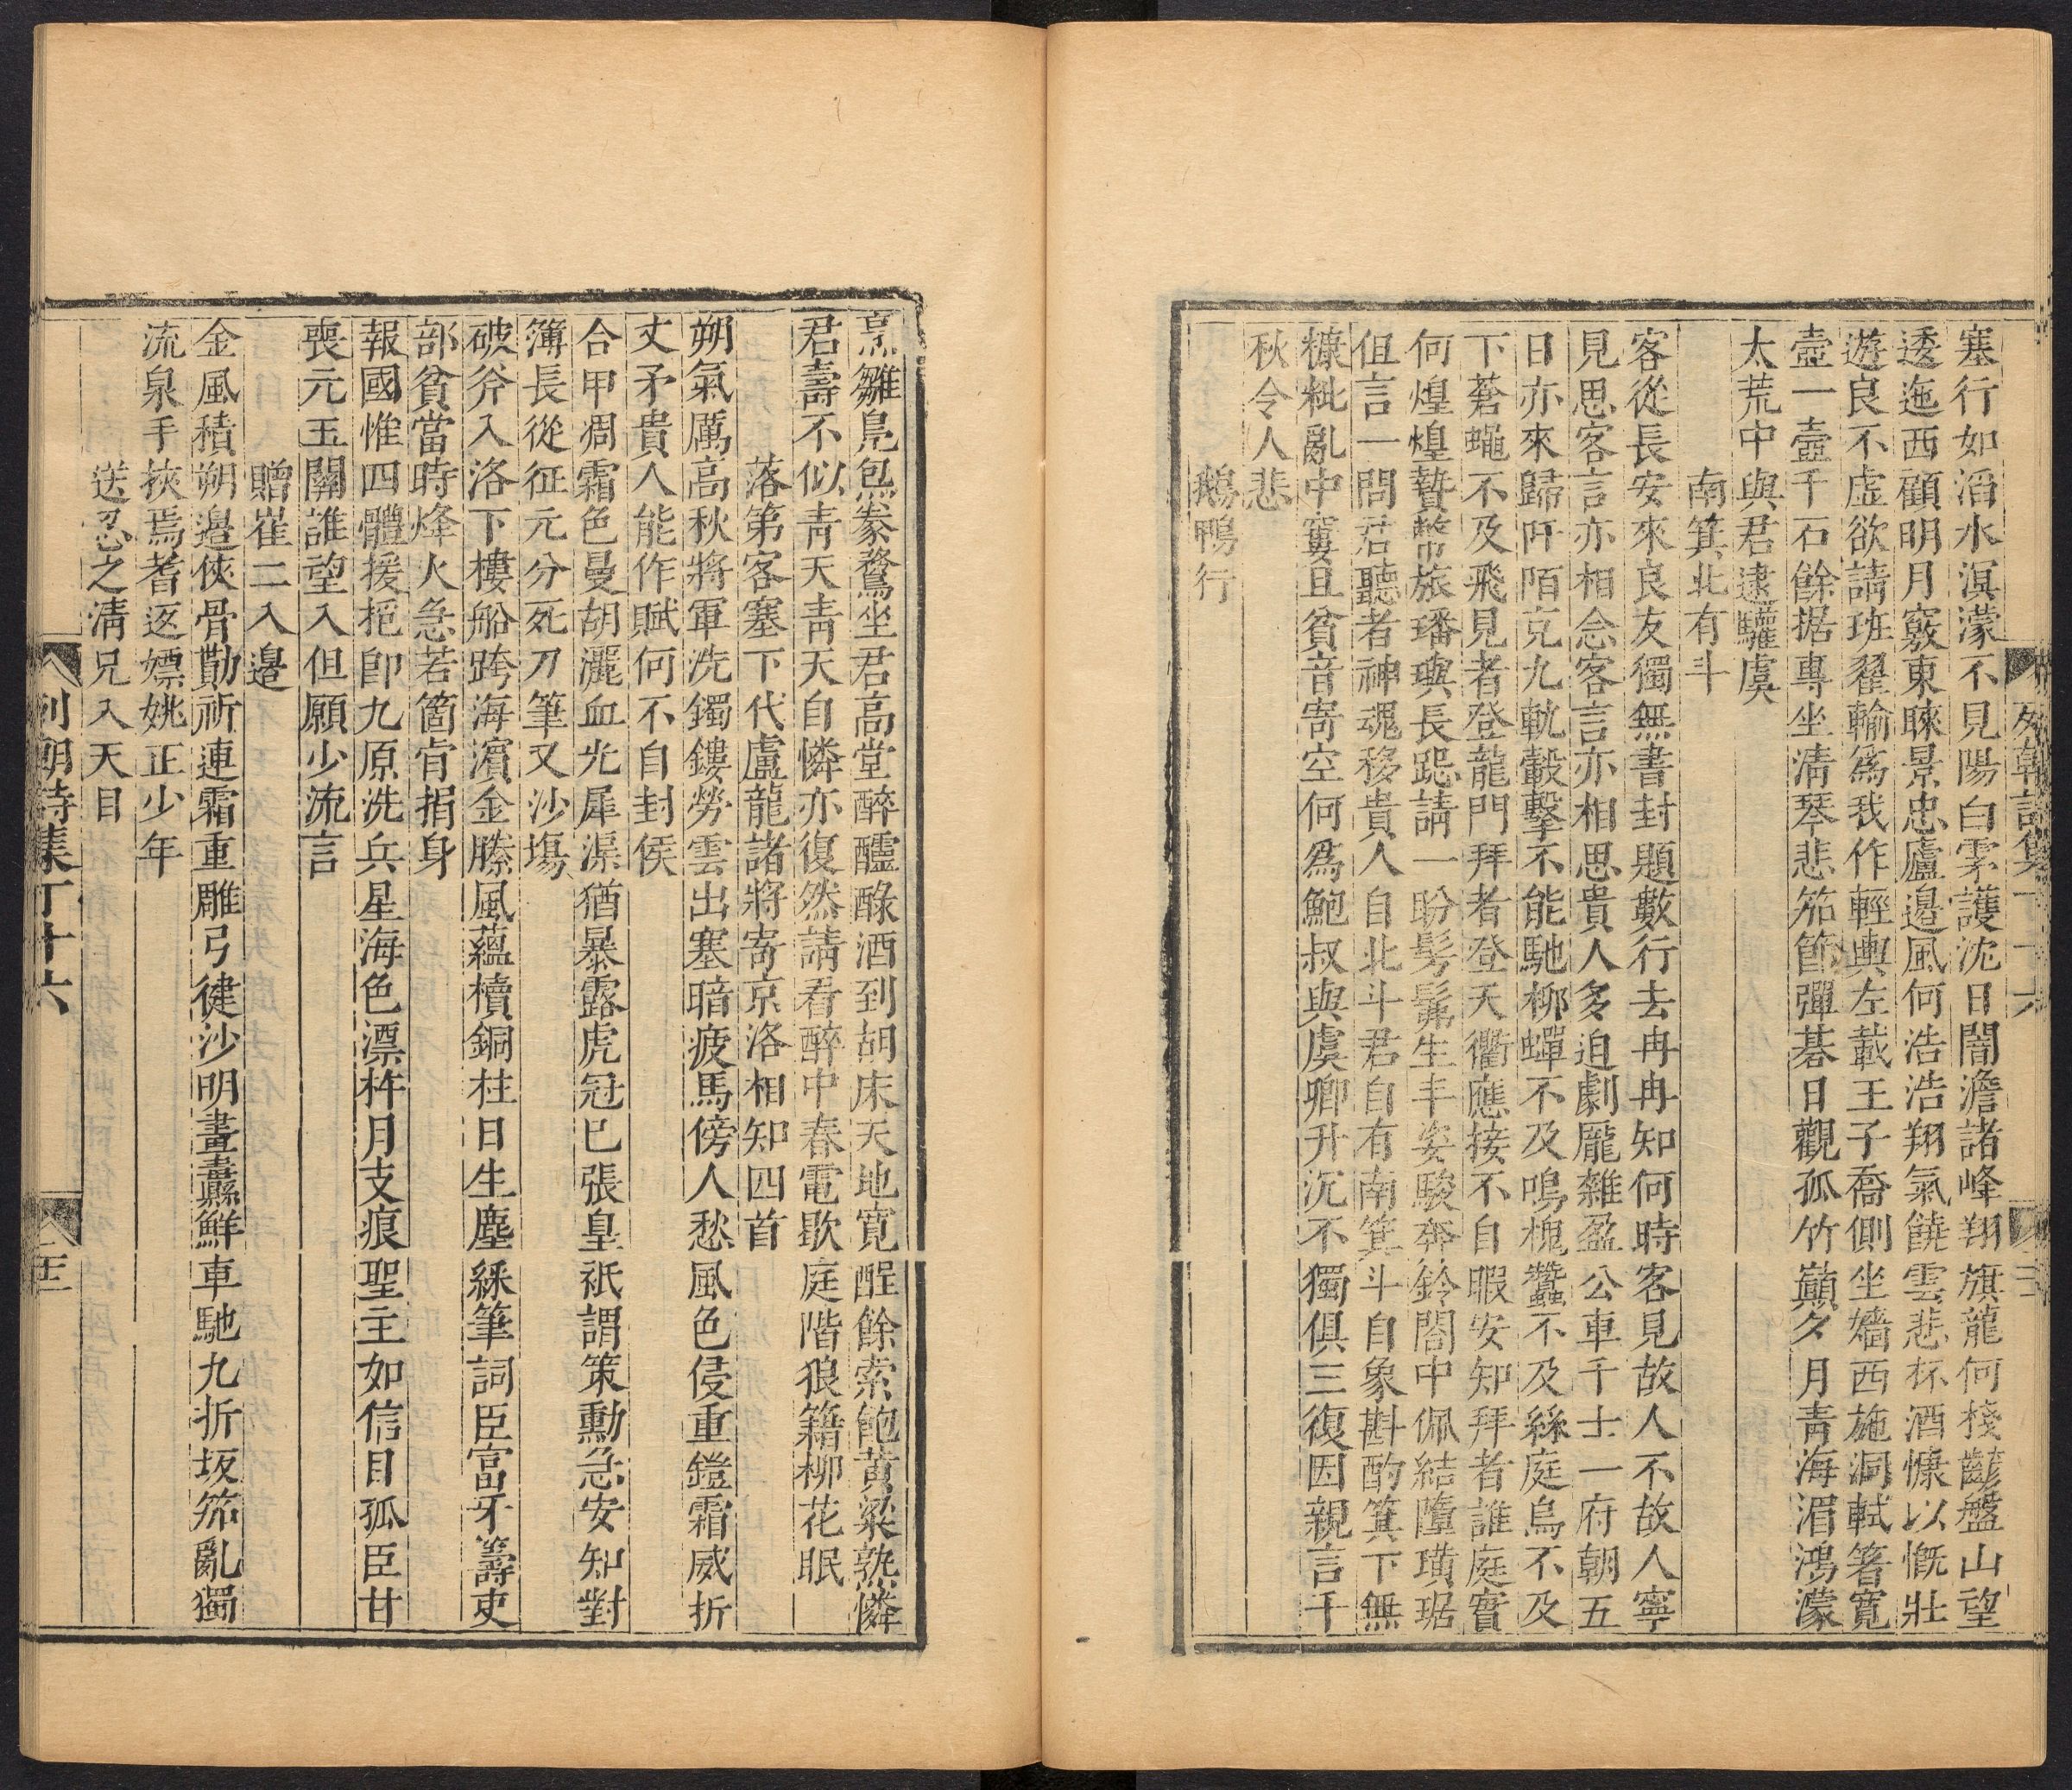 塞行如滔水溟濛不見陽白雲護沈日闇澹諸峰翔旗龍何棧齴盤山望
逶迤西顧明月竅東睞景忠廬邊風何浩浩翔氣饒雲悲杯酒慷以慨壯
遊良不虛欲請班翟輸爲我作輕輿左載王子喬側坐嬙西施洞軾箸寬
壺一壺千石餘据專坐淸琴悲笳節彈碁日觀孤竹巔夕月靑海湄鴻濛
太荒中與君逮驪虞
南箕北有斗
客從長安來良友獨無書封題數行去冉冉知何時客見故人不故人寧
見思客言亦相念客言亦相思貴人多迫劇厖雜盈公車千士一府朝五
日亦來歸阡陌克九軌轂擊不能馳柳蟬不及鳴槐蠶不及絲庭鳥不及
下蒼蠅不及飛見者登龍門拜者登天衢應接不自暇安知拜者誰庭實
何煌煌贄幣旅璠璵長跽請一盼髣髴生丰姿駿奔鈴閤中佩結墮璜琚
但言一問君聽者神魂移貴人自北斗君自有南箕斗自象斟酌箕下無
糠粃亂中窶且貧音寄空何爲鮑叔與虞卿升沉不獨俱三復因親言千
秋令人悲
鵝鴨行
列朝詩集丁十六
烹雛鳧炰羕鶩坐君高堂醉醽醁酒到胡床天地寛酲餘索飽黃粱孰憐
君壽不似靑天靑天自憐亦復然請看醉中春電歇庭階狼籍柳花眠
落第客塞下代盧龍諸將寄京洛相知四首
朔氣厲高秋將軍洗鐲鏤勞雲出塞暗疲馬傍人愁風色侵重鎧霜威折
丈矛貴人能作賦何不自封侯
合甲凋霜色曼胡灑血光犀渠猶暴露虎冠已張皇祇謂策勳急安知對
簿長從征元分死刀筆又沙塲
破斧入洛下樓船跨海濵金縢風蘊櫝銅柱日生塵綵筆詞臣富牙籌吏
部貧當時烽火急若箇肯捐身
報國惟四體援抱卽九原洗兵星海色漂杵月支痕聖主如信目孤臣甘
喪元玉關誰望入但願少流言
贈崔二入邊
金風積朔邊俠骨勩祈連霜重雕弓健沙明畫纛鮮車馳九折坂笳亂獨
流泉手挾焉耆返嫖姚正少年
送忍之淸兄入天目
列朝詩集丁十六